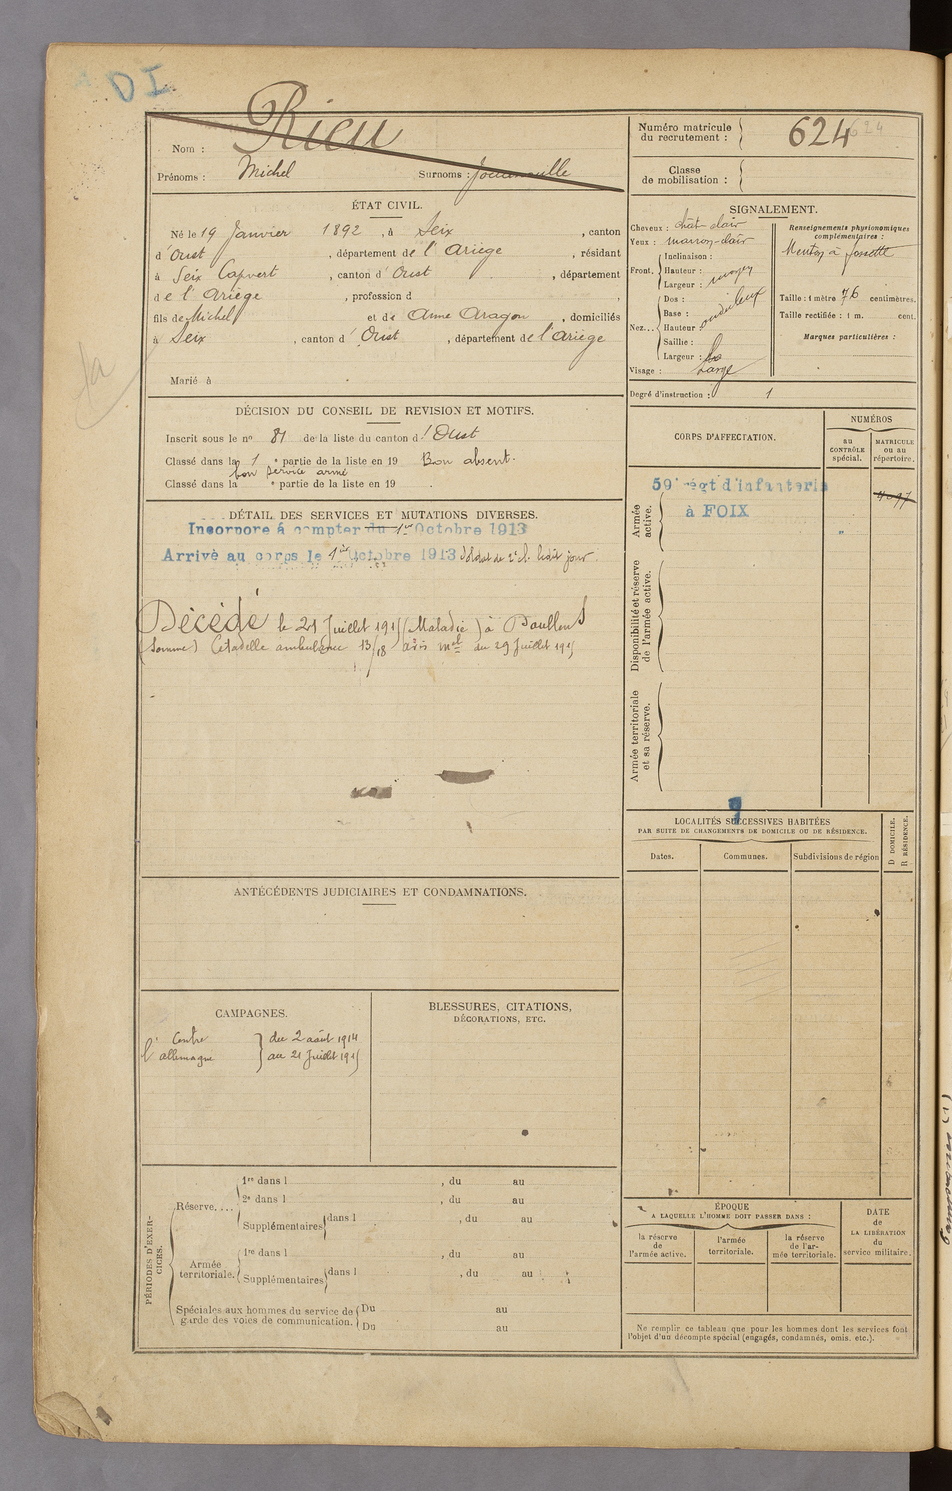 DI
Nom : Rieu
Prénoms : Michel Surnoms :
ÉTAT CIVIL.
Né le 19 Janvier 1892, à Seix, canton
d'Oust, département de l'Ariège, résidant
à Seix Capvert, canton d'Oust, département
de l'Ariège, profession d
fils de Michel et de Anne Aragon, domiciliés
à Seix, canton d'Oust, département de l'Ariège
Marié à
DÉCISION DU CONSEIL DE REVISION ET MOTIFS.
Inscrit sous le n° 81 de la liste du canton d'Oust
Classé dans la 1 e partie de la liste en 19 Bon absent.
bon service armé
Classé dans la e partie de la liste en 19 .
DÉTAIL DES SERVICES ET MUTATIONS DIVERSES.
Incorporé à compter du 1er Octobre 1913
Arrivé au corps le 1er Octobre 1913 Soldat de 2e cl. ledit jour.
Décédé le 21 Juillet 1915 (Maladie) à Doullens
(Somme) Citadelle ambulance 13/18 avis mel du 29 Juillet 1915
ANTÉCÉDENTS JUDICIAIRES ET CONDAMNATIONS.
CAMPAGNES.
Contre
l'allemagne
du 2 août 1914
au 21 Juillet 1915
BLESSURES, CITATIONS,
DÉCORATIONS, ETC.
PÉRIODES D'EXER-
CICES.
Réserve....
1re dans l , du au
2e dans l , du au
Supplémentaires dans l , du au
Armée
territoriale.
1re dans l , du au
Supplémentaires dans l , du au
Spéciales aux hommes du service de
garde des voies de communication.
Du au
Du au
Numéro matricule
du recrutement :
624
624
Classe
de mobilisation :
SIGNALEMENT.
Cheveux : chât-clair
Yeux : marron-clair
Front,
Inclinaison :
Hauteur :
Largeur : moyen
Nez...
Dos :
Base :
Hauteur onduleux
Saillie :
Largeur :
Visage : Large
Renseignements physionomiques
complémentaires :
Menton à fossette
Taille : 1 mètre 76 centimètres.
Taille rectifiée : 1 m. cent.
Marques particulières :
Degré d'instruction : 1
CORPS D'AFFECTATION.
NUMÉROS
au
CONTRÔLE
spécial.
MATRICULE
ou au
répertoire.
Armée
active.
59e régt d'infanterie
à FOIX
Disponibilité et réserve
de l'armée active.
Armée territoriale
et sa réserve.
LOCALITÉS SUCCESSIVES HABITÉES
PAR SUITE DE CHANGEMENTS DE DOMICILE OU DE RÉSIDENCE.
Dates.
Communes.
Subdivisions de région
D DOMICILE.
R RÉSIDENCE.
ÉPOQUE
A LAQUELLE L'HOMME DOIT PASSER DANS :
la réserve
de
l'armée active.
l'armée
territoriale.
la réserve
de l'ar-
mée territoriale.
DATE
de
LA LIBÉRATION
du
service militaire.
Ne remplir ce tableau que pour les hommes dont les services font
l'objet d'un décompte spécial (engagés, condamnés, omis. etc.).